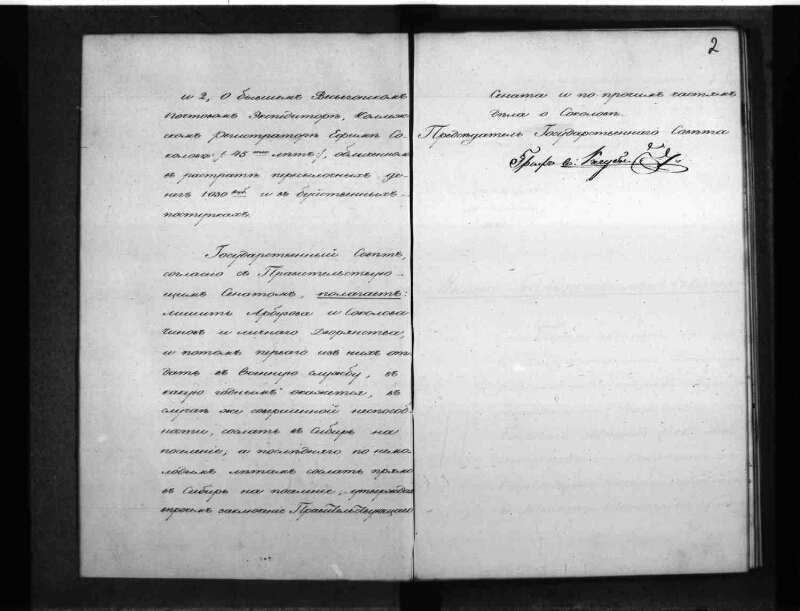 и 2, О бывшемъ Весьегонскомъ
Почтовомъ Экспедиторѣ, Коллеж-
скомъ Регистраторѣ Ефимѣ Со-
коловѣ /: 45 лѣтъ :/, обвиненномъ
въ растратѣ пересылочныхъ де-
негъ 1030 руб. и въ буйственныхъ
поступкахъ.
Государственный Совѣтъ,
согласно съ Правительствую-
щимъ Сенатомъ, полагаетъ:
лишить Арбузова и Соколова
чиновъ и личнаго Дворянства,
и потомъ перваго изъ нихъ от-
дать въ военную службу, въ
какую годнымъ окажется, въ
случаѣ же совершенной неспособ-
ности, сослать въ Сибирь на
поселеніе; а послѣдняго по немо-
лодымъ лѣтамъ сослать прямо
въ Сибирь на поселеніе; утвердивъ
впрочемъ заключеніе Правительствующаго
2
Сената и по прочимъ частямъ
дѣла о Соколовѣ.
Предсѣдатель Государственнаго Совѣта
Графъ В: Кочубей